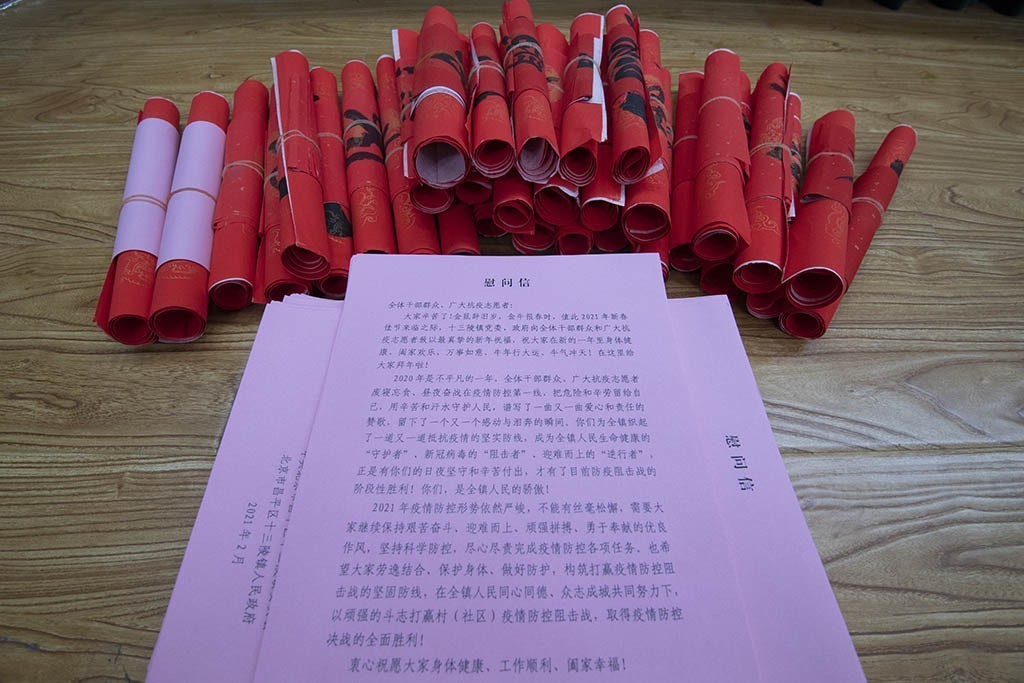 慰问信
全体干部群众、广大抗疫志愿者:
大家辛苦了!金鼠辞旧岁，金牛报春时。值此2021年新春
佳节来临之际，十三陵镇党委、政府向全体干部群众和广大抗
疫志愿者致以最真挚的新年祝福，祝大家在新的一年里身体健
康、阖家欢乐、万事如意、牛年行大运、牛气冲天!在这里给
大家拜年啦!
2020年是不平凡的一年，全体干部群众、广大抗疫志愿者
废寝忘食、昼夜奋战在疫情防控第一线，把危险和辛劳留给自
己，用辛苦和汗水守护人民，谱写了一曲又一曲爱心和责任的
赞歌，留下了一个又一个感动与泪奔的瞬间。你们为全镇织起
了一道又一道抵抗疫情的坚实防线，成为全镇人民生命健康的
“守护者”、新冠病毒的“阻击者”、迎难而上的“逆行者”，
正是有你们的日夜坚守和辛苦付出，才有了目前防疫阻击战的
阶段性胜利!你们，是全镇人民的骄傲!
2021年疫情防控形势依然严峻，不能有丝毫松懈，需要大
家继续保持艰苦奋斗、迎难而上、顽强拼搏、勇于奉献的优良
作风，坚持科学防控，尽心尽责完成疫情防控各项任务。也希
望大家劳逸结合、保护身体、做好防护，构筑打赢疫情防控阻
击战的坚固防线，在全镇人民同心同德、众志成城共同努力下，
以顽强的斗志打赢村(社区)疫情防控阻击战，取得疫情防控
决战的全面胜利!
衷心祝愿大家身体健康、工作顺利、阖家幸福!
北京市昌平区十三陵镇人民政府
2021年2月
慰问信